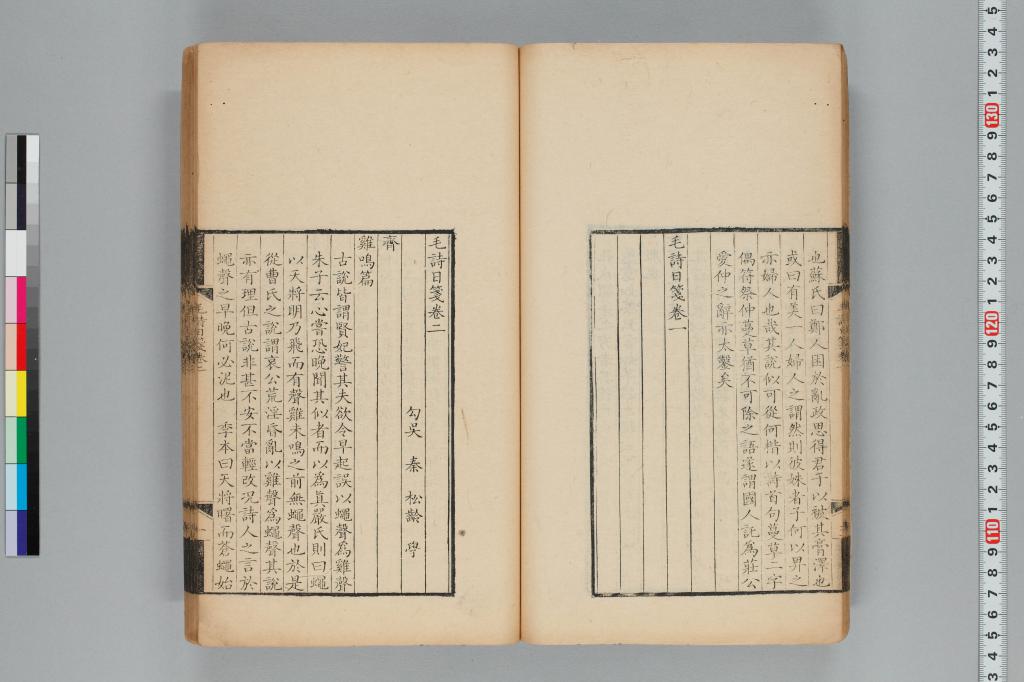 也蘇氏曰鄭人困於亂政思得君子以被其膏澤也
或曰有美一人婦人之謂然則彼姝者子何以畀之
亦婦人也哉其說似可從何楷以詩首句蔓草二字
偶符祭仲蔓草猶不可除之語遂謂國人託為莊公
愛仲之辭亦太鑿矣
毛詩日箋卷一
毛詩日箋卷二
勾吳 秦 松齡 學
齊
雞鳴篇
古說皆謂賢妃警其夫欲令早起誤以蠅聲為雞聲
朱子云心嘗恐晚聞其似者而以為真嚴氏則曰蠅
以天將明乃飛而有聲雞未鳴之前無蠅聲也於是
從曹氏之說謂哀公荒淫昏亂以雞聲為蠅聲其說
亦有理但古說非甚不安不當輕改況詩人之言於
蠅聲之早晚何必泥也 季本曰天將曙而蒼蠅始